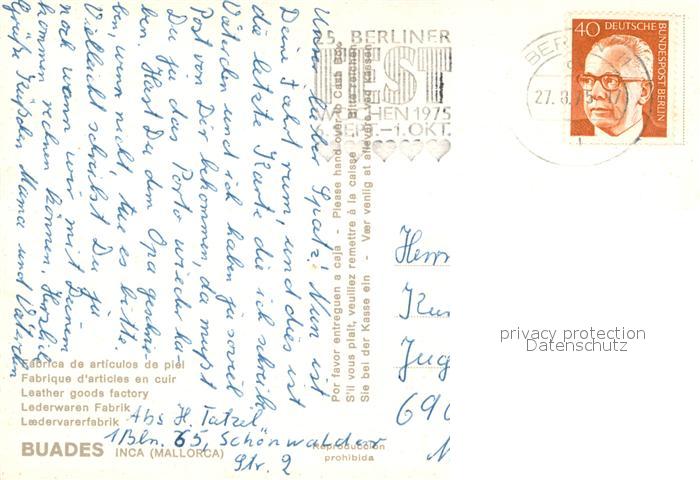 Unser lieber Spatz! Nun ist
Deine Fahrt rum, und dies ist
die letzte Karte die ich schreibe.
Väterden und ich haben ja soviel
Post von Dir bekommen, da mußt
Du ja das Porto wieder ha-
ben. Hast Du dem Opa geschrie-
ben, wenn nicht tue es bitte.
Vielleicht schreibst Du ja
noch wann wir mit Deinem
kommen rechnen können. Herzliche
Grüße Küßchen Mama und Väterden
25. BERLINER
FEST
WOCHEN 1975
-1. OKT.
27.8.75
40 DEUTSCHE
BUNDESPOST BERLIN
Por favor entreguen a caja - Please hand over to Cash Box
S'il vous plait, veuillez remettre à la caisse
Sie bei der Kasse ein - Vær venlig at aflevere ved kassen
Herrn
Jug
690
privacy protection
Datenschutz
Fábrica de artículos de piel
Fabrique d'articles en cuir
Leather goods factory
Lederwaren Fabrik
Lædervarerfabrik
BUADES INCA (MALLORCA)
Abs. H. Tatzel
1 Bln. 65, Schönwalder
Str. 2
Reproducción
prohibida